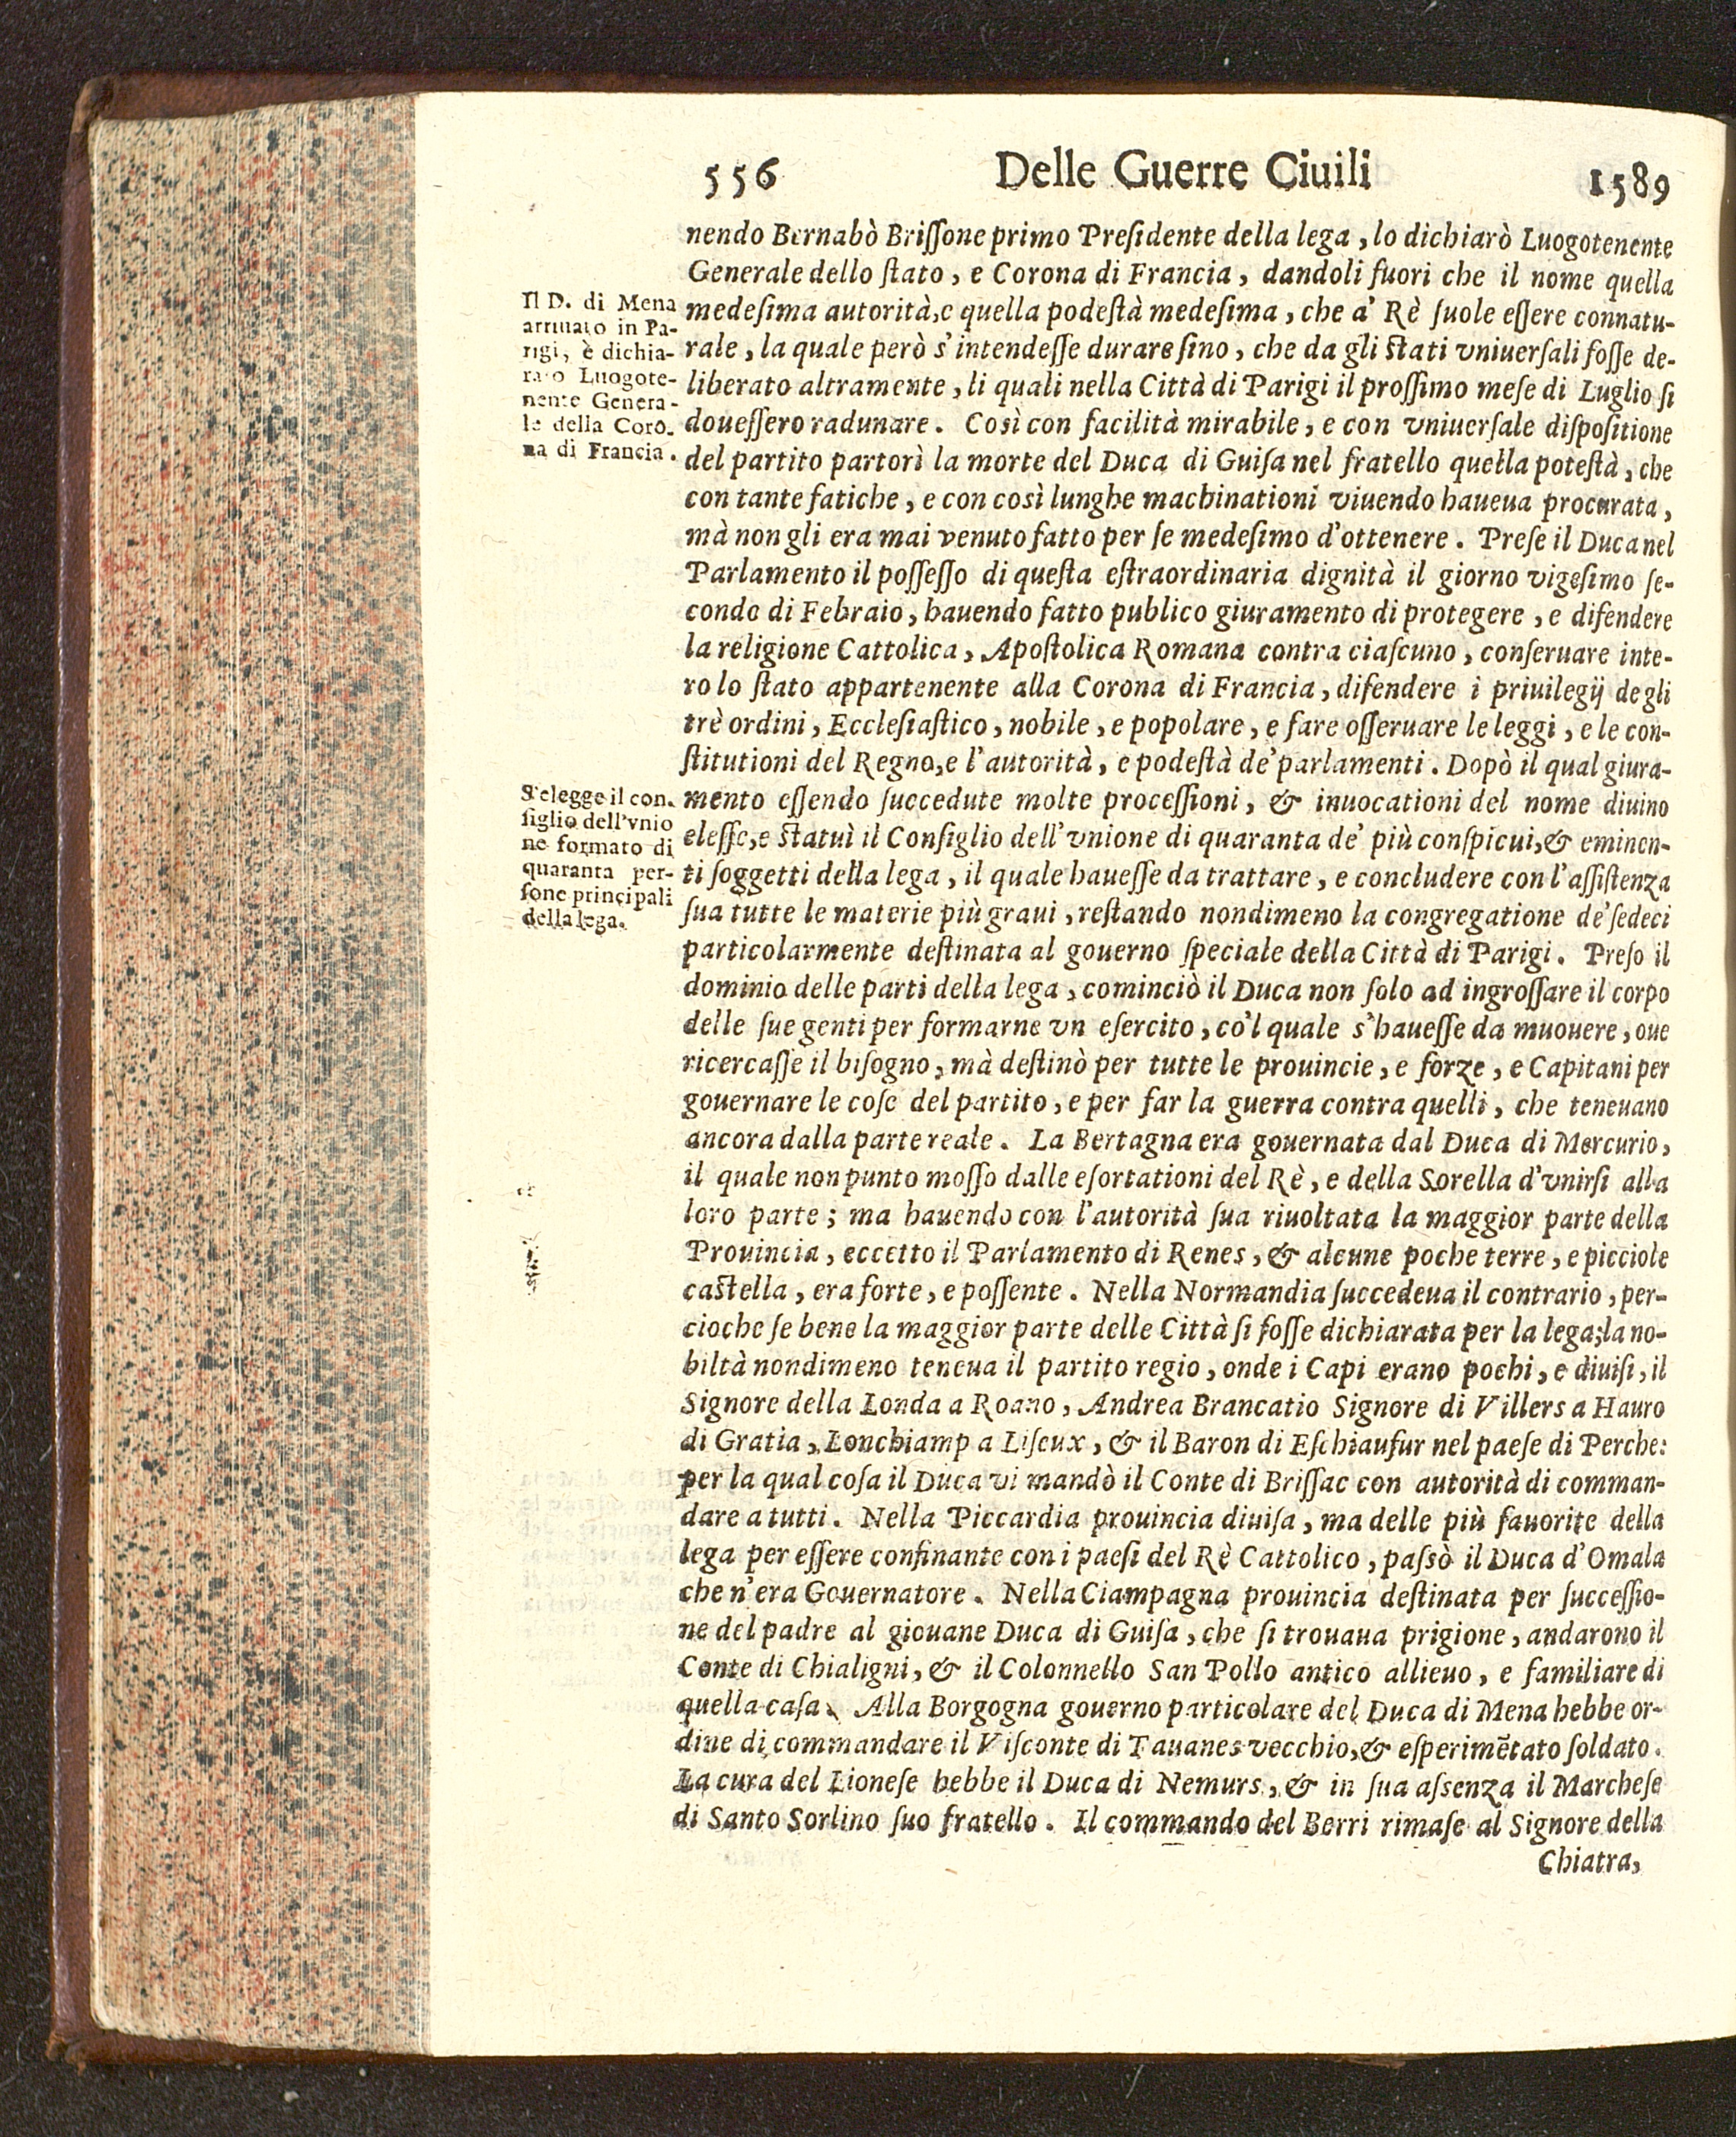 556 Delle Guerre Ciuili 1589
nendo Bernabò Briſſone primo Preſidente della lega, lo dichiarò Luogotenente
Generale dello ſtato, e Corona di Francia, dandoli fuori che il nome quella
medeſima autorità, e quella podeſtà medeſima, che a' Rè ſuole eſſere connatu-
rale, la quale però s'intendeſſe durare ſino, che da gli ſtati vniuerſali foſſe de-
liberato altramente, li quali nella Città di Parigi il proſſimo meſe di Luglio ſi
doueſſero radunare. Così con facilità mirabile, e con vniuerſale diſpoſitione
del partito partorì la morte del Duca di Guiſa nel fratello quella poteſtà, che
con tante fatiche, e con così lunghe machinationi viuendo haueua procurata,
mà non gli era mai venuto fatto per ſe medeſimo d'ottenere. Preſe il Duca nel
Parlamento il poſſeſſo di queſta eſtraordinaria dignità il giorno vigeſimo ſe-
condo di Febraio, hauendo fatto publico giuramento di protegere, e difendere
la religione Cattolica, Apoſtolica Romana contra ciaſcuno, conſeruare inte-
ro lo ſtato appartenente alla Corona di Francia, difendere i priuilegij degli
trè ordini, Eccleſiaſtico, nobile, e popolare, e fare oſſeruare le leggi, e le con-
ſtitutioni del Regno, e l'autorità, e podeſtà de' parlamenti. Dopò il qual giura-
mento eſſendo ſuccedute molte proceſſioni, & inuocationi del nome diuino
eleſſe, e ſtatuì il Conſiglio dell'vnione di quaranta de' più conſpicui, & eminen-
ti ſoggetti della lega, il quale haueſſe da trattare, e concludere con l'aſſiſtenza
ſua tutte le materie più graui, reſtando nondimeno la congregatione de' ſedeci
particolarmente deſtinata al gouerno ſpeciale della Città di Parigi. Preſo il
dominio delle parti della lega, cominciò il Duca non ſolo ad ingroſſare il corpo
delle ſue genti per formarne vn eſercito, co'l quale s'haueſſe da muouere, oue
ricercaſſe il biſogno, mà deſtinò per tutte le prouincie, e forze, e Capitani per
gouernare le coſe del partito, e per far la guerra contra quelli, che teneuano
ancora dalla parte reale. La Bertagna era gouernata dal Duca di Mercurio,
il quale non punto moſſo dalle eſortationi del Rè, e della Sorella d'vnirſi alla
loro parte; ma hauendo con l'autorità ſua riuoltata la maggior parte della
Prouincia, eccetto il Parlamento di Renes, & alcune poche terre, e picciole
caſtella, era forte, e poſſente. Nella Normandia ſuccedeua il contrario, per-
cioche ſe bene la maggior parte delle Città ſi foſſe dichiarata per la lega; la no-
biltà nondimeno teneua il partito regio, onde i Capi erano pochi, e diuiſi, il
Signore della Londa a Roano, Andrea Brancatio Signore di Villers a Hauro
di Gratia, Lonchiamp a Liſeux, & il Baron di Eſchiaufur nel paeſe di Perche:
per la qual coſa il Duca vi mandò il Conte di Briſſac con autorità di comman-
dare a tutti. Nella Piccardia prouincia diuiſa, ma delle più fauorite della
lega per eſſere confinante con i paeſi del Rè Cattolico, paſsò il Duca d'Omala
che n'era Gouernatore. Nella Ciampagna prouincia deſtinata per ſucceſſio-
ne del padre al giouane Duca di Guiſa, che ſi trouaua prigione, andarono il
Conte di Chialigni, & il Colonnello San Pollo antico allieuo, e familiare di
quella caſa. Alla Borgogna gouerno particolare del Duca di Mena hebbe or-
dine di commandare il Viſconte di Tauanes vecchio, & eſperimẽtato ſoldato.
La cura del Lioneſe hebbe il Duca di Nemurs, & in ſua aſsenza il Marcheſe
di Santo Sorlino ſuo fratello. Il commando del Berri rimaſe al Signore della
Chiatra,
Il D. di Mena
arriuato in Pa-
rigi, è dichia-
rato Luogote-
nente Genera-
le della Coro-
na di Francia.
S'elegge il con-
ſiglio dell'vnio
ne formato di
quaranta per-
ſone principali
della lega.